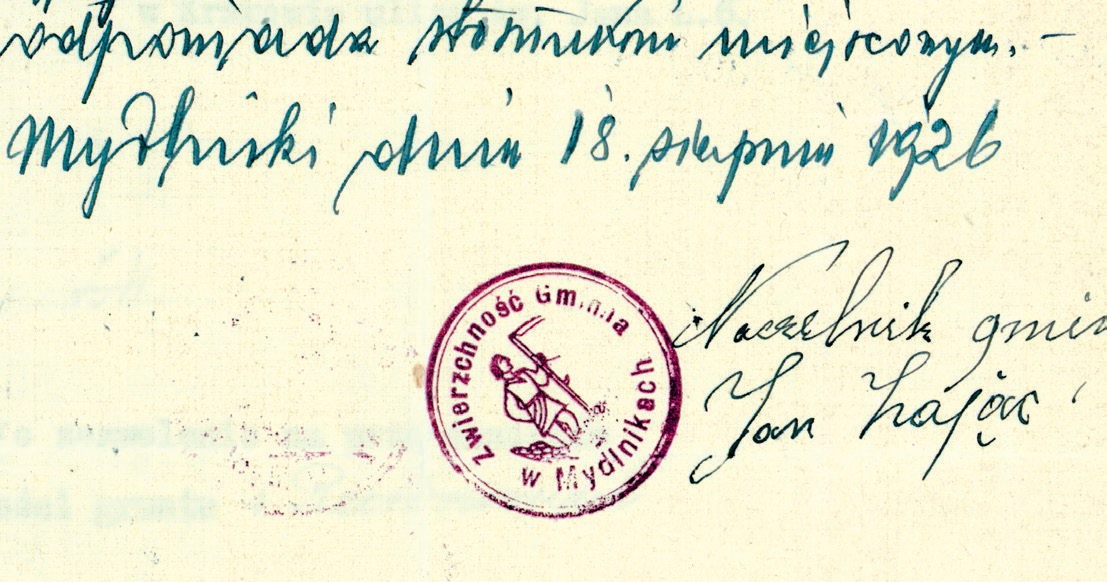 odpowiada stosunkom miejscowym. —
Mydlniki dnia 18. sierpnia 1926
Zwierzchność Gminna
w Mydlnikach
Naczelnik gmin
Jan Zając